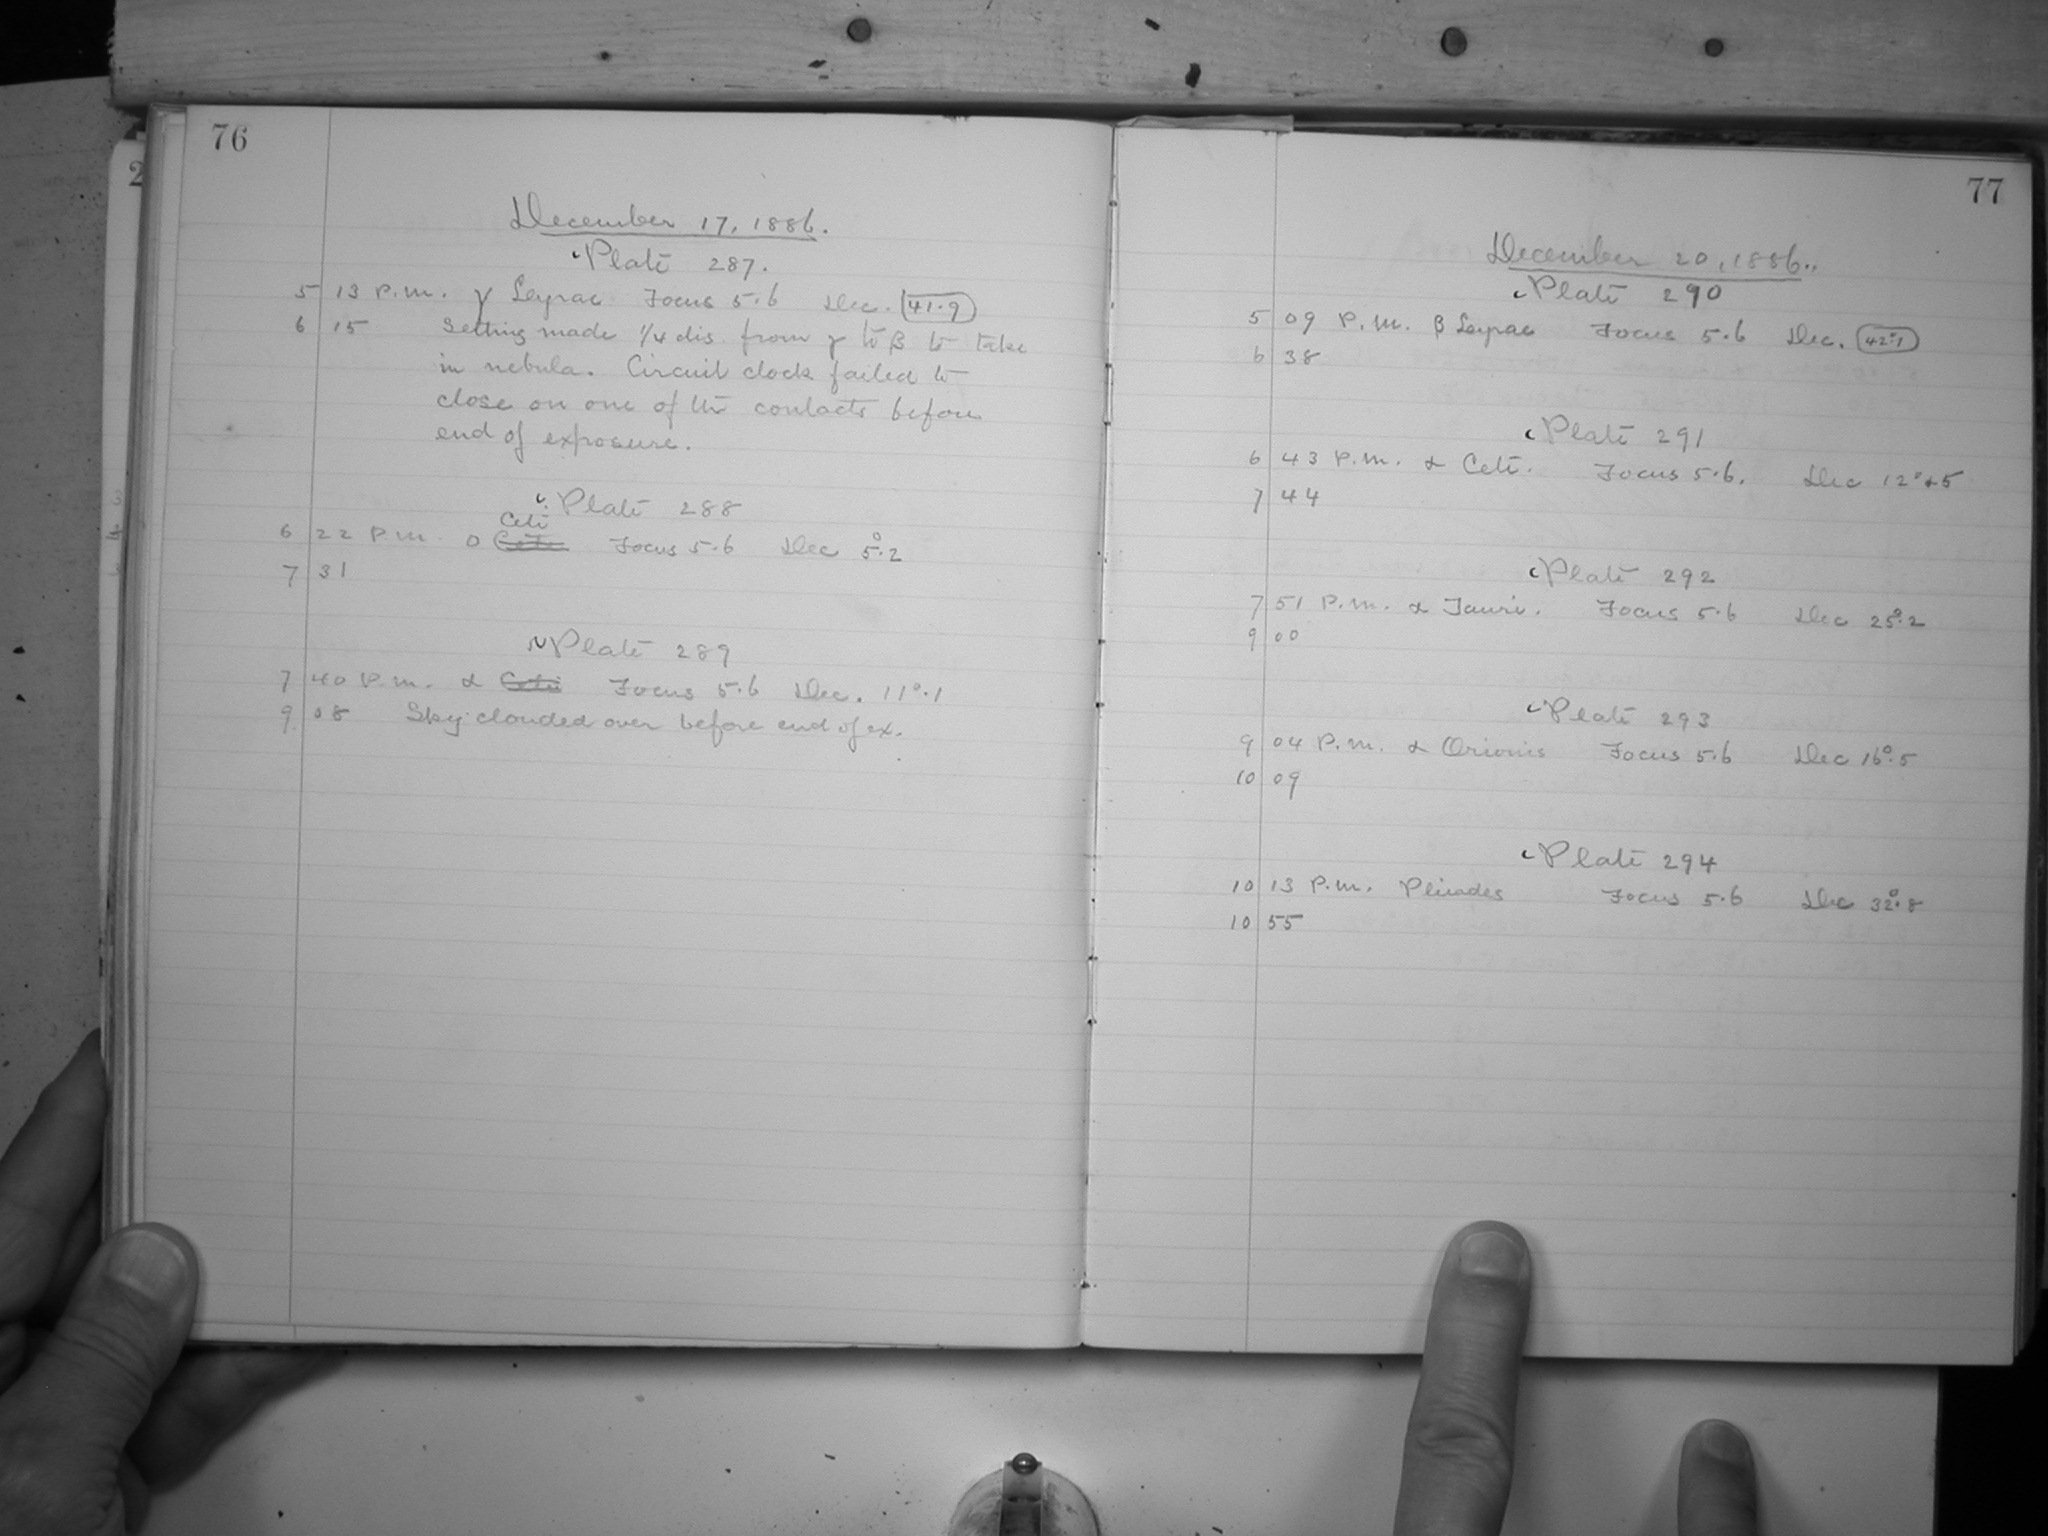 76
December 17, 1886.
Plate 287.
5 13 P.M. γ Lyrae Focus 5.6 Dec. 41.9
6 15 Setting made 1/4 dis. from γ to β to take
in nebula. Circuit clock failed to
close on one of the contacts before
end of exposure.
Plate 288
Ceti
6 22 P.M. o Focus 5.6 Dec 5°.2
7 31
Plate 289
7 40 P.M. α Ceti Focus 5.6 Dec. 11°.1
9 08 Sky clouded over before end of ex.
77
December 20, 1886.
Plate 290
5 09 P.M. β Lyrae Focus 5.6 Dec. 42°.1
6 38
Plate 291
6 43 P.M. α Ceti. Focus 5.6. Dec
7 44
Plate 292
7 51 P.M. α Tauri. Focus 5.6 Dec 25°.2
9 00
Plate 293
9 04 P.M. α Orionis Focus 5.6 Dec 16°.5
10 09
Plate 294
10 13 P.M. Pleiades Focus 5.6 Dec 32°.8
10 55